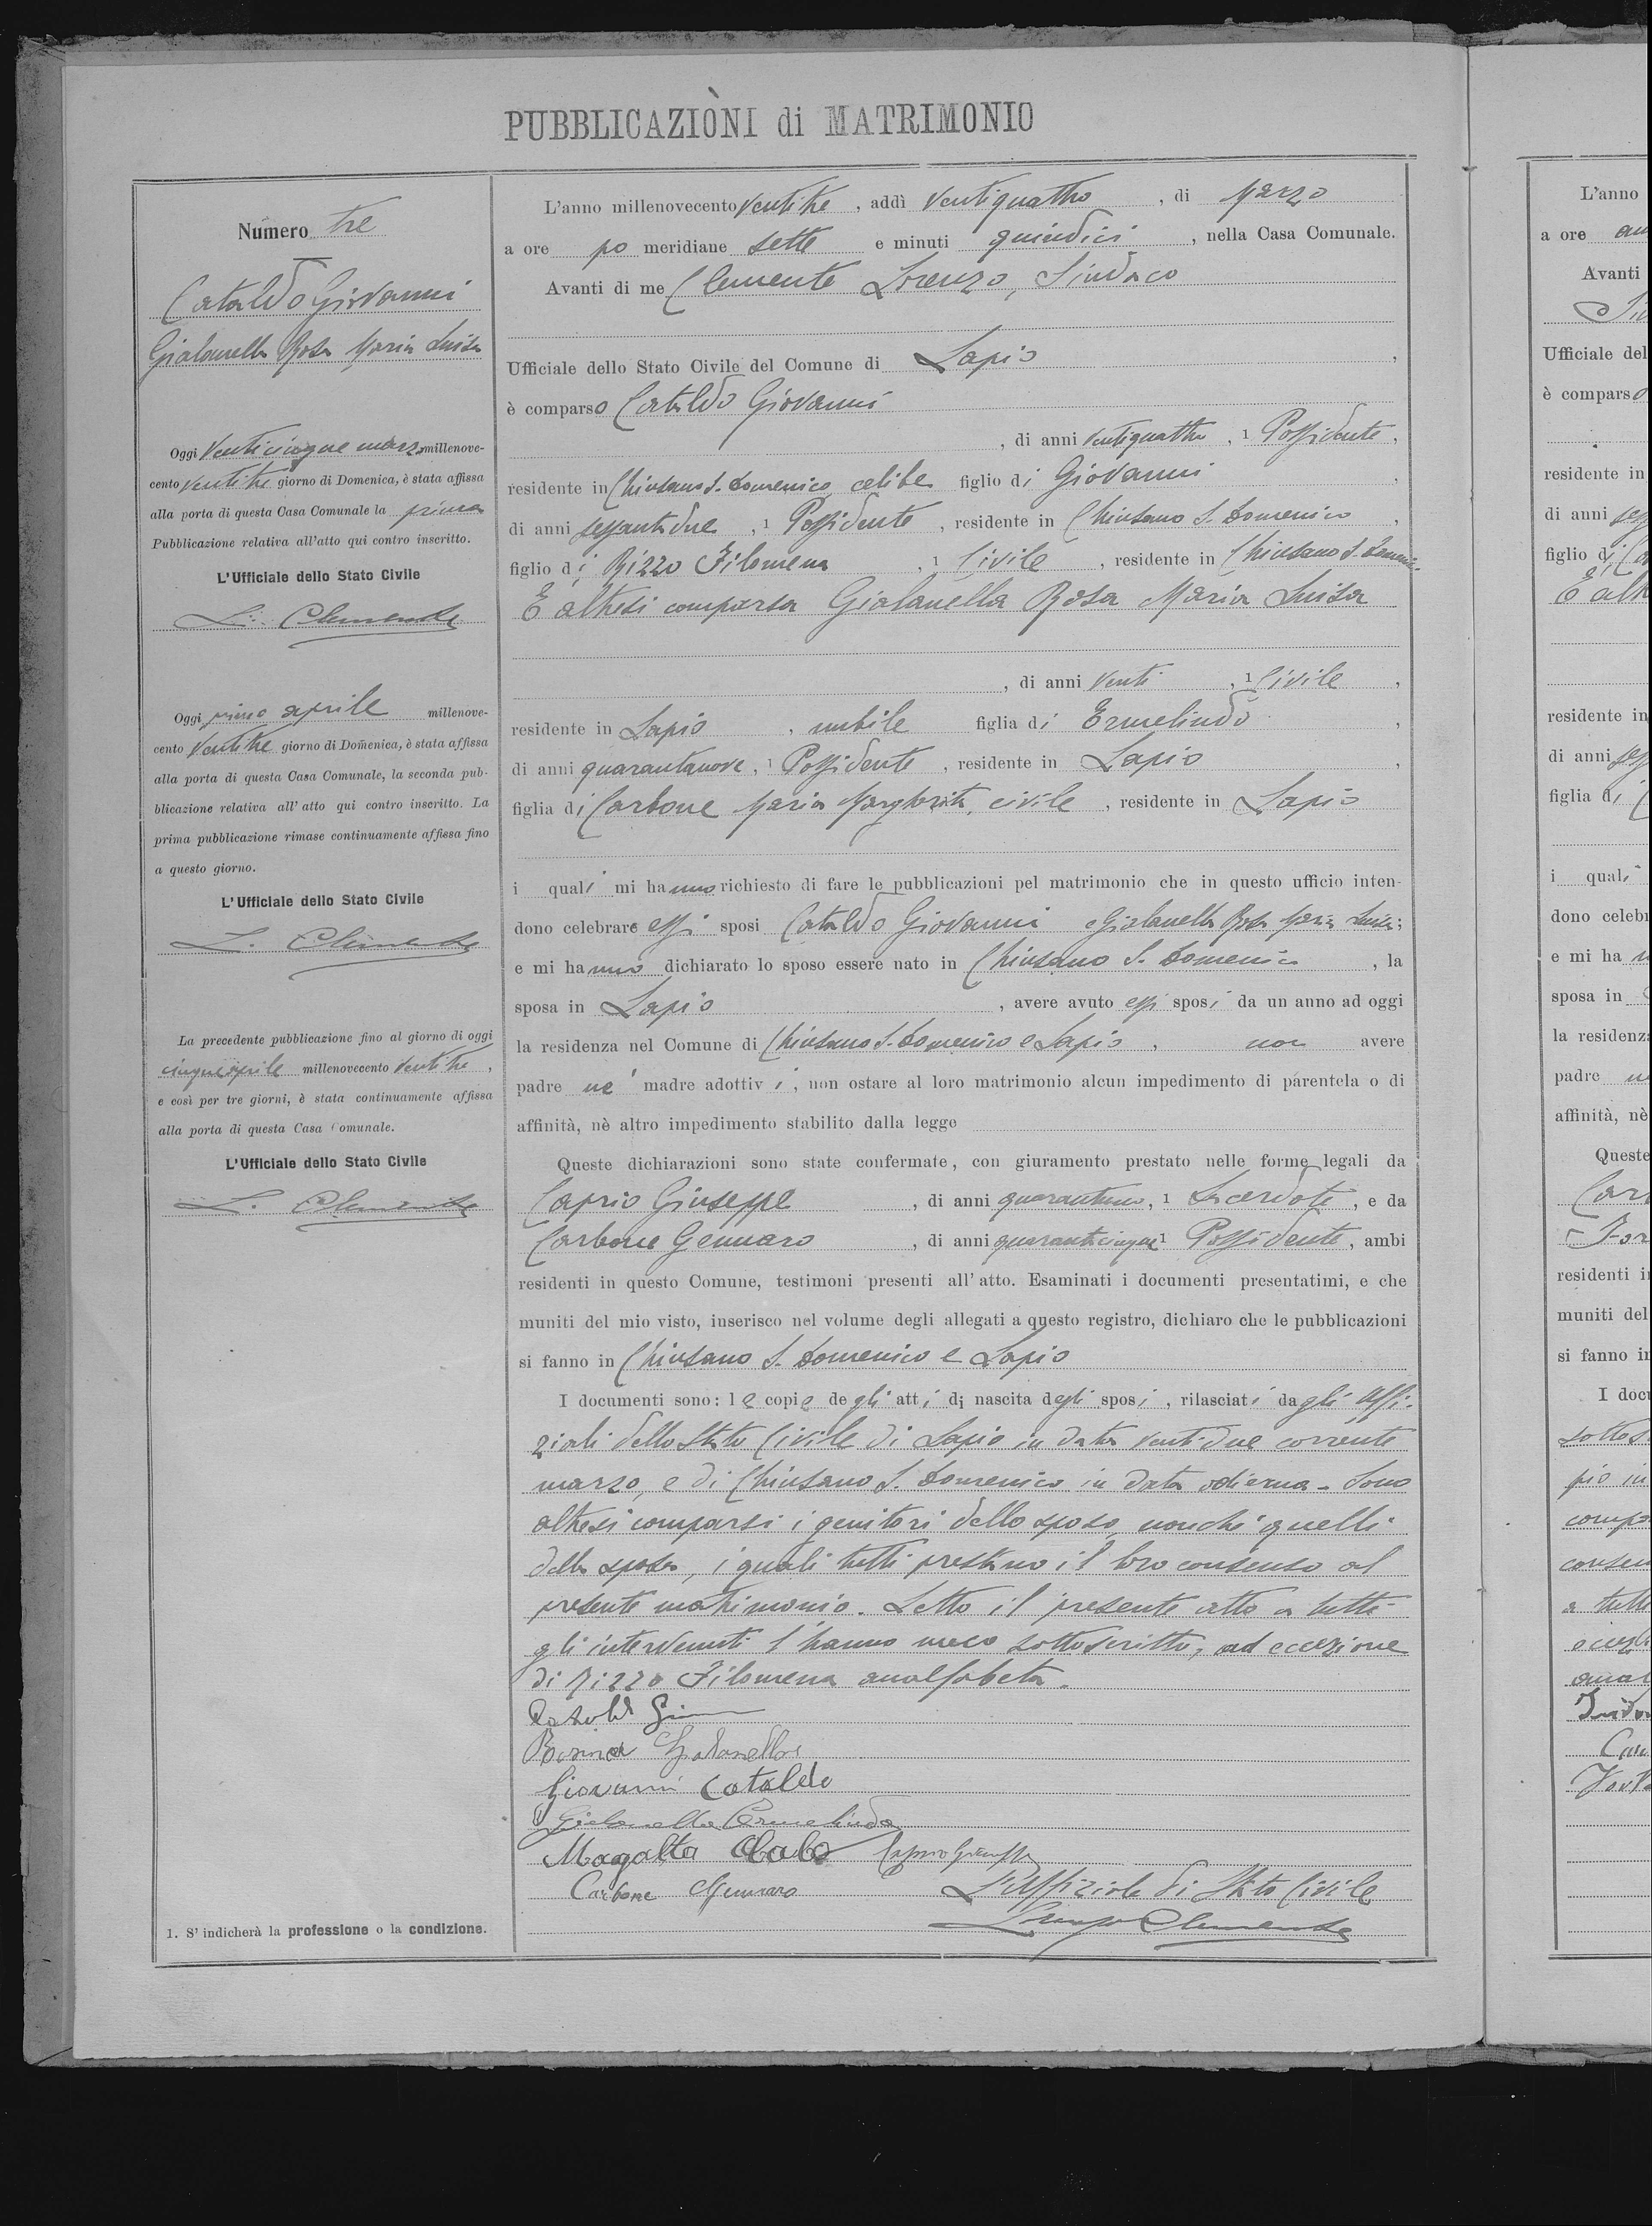 PUBBLICAZIONI di MATRIMONIO
Numero tre
Cataldo Giovanni
Gialanella Rosa Maria Luisa
Oggi venticinque marzo millenove-
cento ventitre giorno di Domenica, è stata affissa
alla porta di questa Casa Comunale la prima
Pubblicazione relativa all'atto qui contro inscritto.
L'Ufficiale dello Stato Civile
L. Clemente
Oggi primo aprile millenove-
cento ventitre giorno di Domenica, è stata affissa
alla porta di questa Casa Comunale, la seconda pub-
blicazione relativa all'atto qui contro inscritto. La
prima pubblicazione rimase continuamente affissa fino
a questo giorno.
L'Ufficiale dello Stato Civile
L. Clemente
La precedente pubblicazione fino al giorno di oggi
cinque aprile millenovecento ventitre,
e così per tre giorni, è stata continuamente affissa
alla porta di questa Casa Comunale.
L'Ufficiale dello Stato Civile
L. Clemente
1. S'indicherà la professione o la condizione.
L'anno millenovecento ventitre, addì ventiquattro, di Marzo
a ore po meridiane sette e minuti quindici, nella Casa Comunale.
Avanti di me Clemente Lorenzo, Sindaco
Ufficiale dello Stato Civile del Comune di Lapio,
è comparso Cataldo Giovanni
, di anni ventiquattro, 1 Possidente,
residente in Chiusano S. Domenico, celibe figlio di Giovanni,
di anni sessantadue, 1 Possidente, residente in Chiusano S. Domenico,
figlio di Rizzo Filomena, 1 civile, residente in Chiusano S. Domenico.
E altresì comparsa Gialanella Rosa Maria Luisa
, di anni venti, 1 civile,
residente in Lapio, nubile figlia di Ermelindo,
di anni quarantanove, 1 Possidente, residente in Lapio,
figlia di Carbone Maria Margherita, civile, residente in Lapio
i quali mi hanno richiesto di fare le pubblicazioni pel matrimonio che in questo ufficio inten-
dono celebrare essi sposi Cataldo Giovanni e Gialanella Rosa Maria Luisa;
e mi hanno dichiarato lo sposo essere nato in Chiusano S. Domenico, la
sposa in Lapio, avere avuto essi sposi da un anno ad oggi
la residenza nel Comune di Chiusano S. Domenico e Lapio, non avere
padre nè madre adottivi, non ostare al loro matrimonio alcun impedimento di parentela o di
affinità, nè altro impedimento stabilito dalla legge
Queste dichiarazioni sono state confermate, con giuramento prestato nelle forme legali da
Caprio Giuseppe, di anni quarantuno, 1 Sacerdote, e da
Carbone Gennaro, di anni quarantacinque 1 Possidente, ambi
residenti in questo Comune, testimoni presenti all'atto. Esaminati i documenti presentatimi, e che
muniti del mio visto, inserisco nel volume degli allegati a questo registro, dichiaro che le pubblicazioni
si fanno in Chiusano S. Domenico e Lapio
I documenti sono: le copie degli atti di nascita degli sposi, rilasciati dagli Uffi-
ziali dello Stato Civile di Lapio in data ventidue corrente
marzo, e di Chiusano S. Domenico in data odierna. Sono
altresì comparsi i genitori dello sposo, nonchè quelli
della sposa, i quali tutti prestano il loro consenso al
presente matrimonio. Letto il presente atto a tutti
gli intervenuti l'hanno meco sottoscritto, ad eccezione
di Rizzo Filomena analfabeta.
Giovanni Cataldo
Gialanella Ermelindo
Caprio Giuseppe
Carbone Gennaro
L'Uffiziale di Stato Civile
Lorenzo Clemente
L'anno
a ore
Avanti
Ufficiale del
è comparso
residente in
di anni
figlio di
residente in
di anni
figlia di
i quali
dono celeb
e mi ha
sposa in
la residenz
padre
affinità, nè
Queste
residenti i
muniti del
si fanno i
I doc